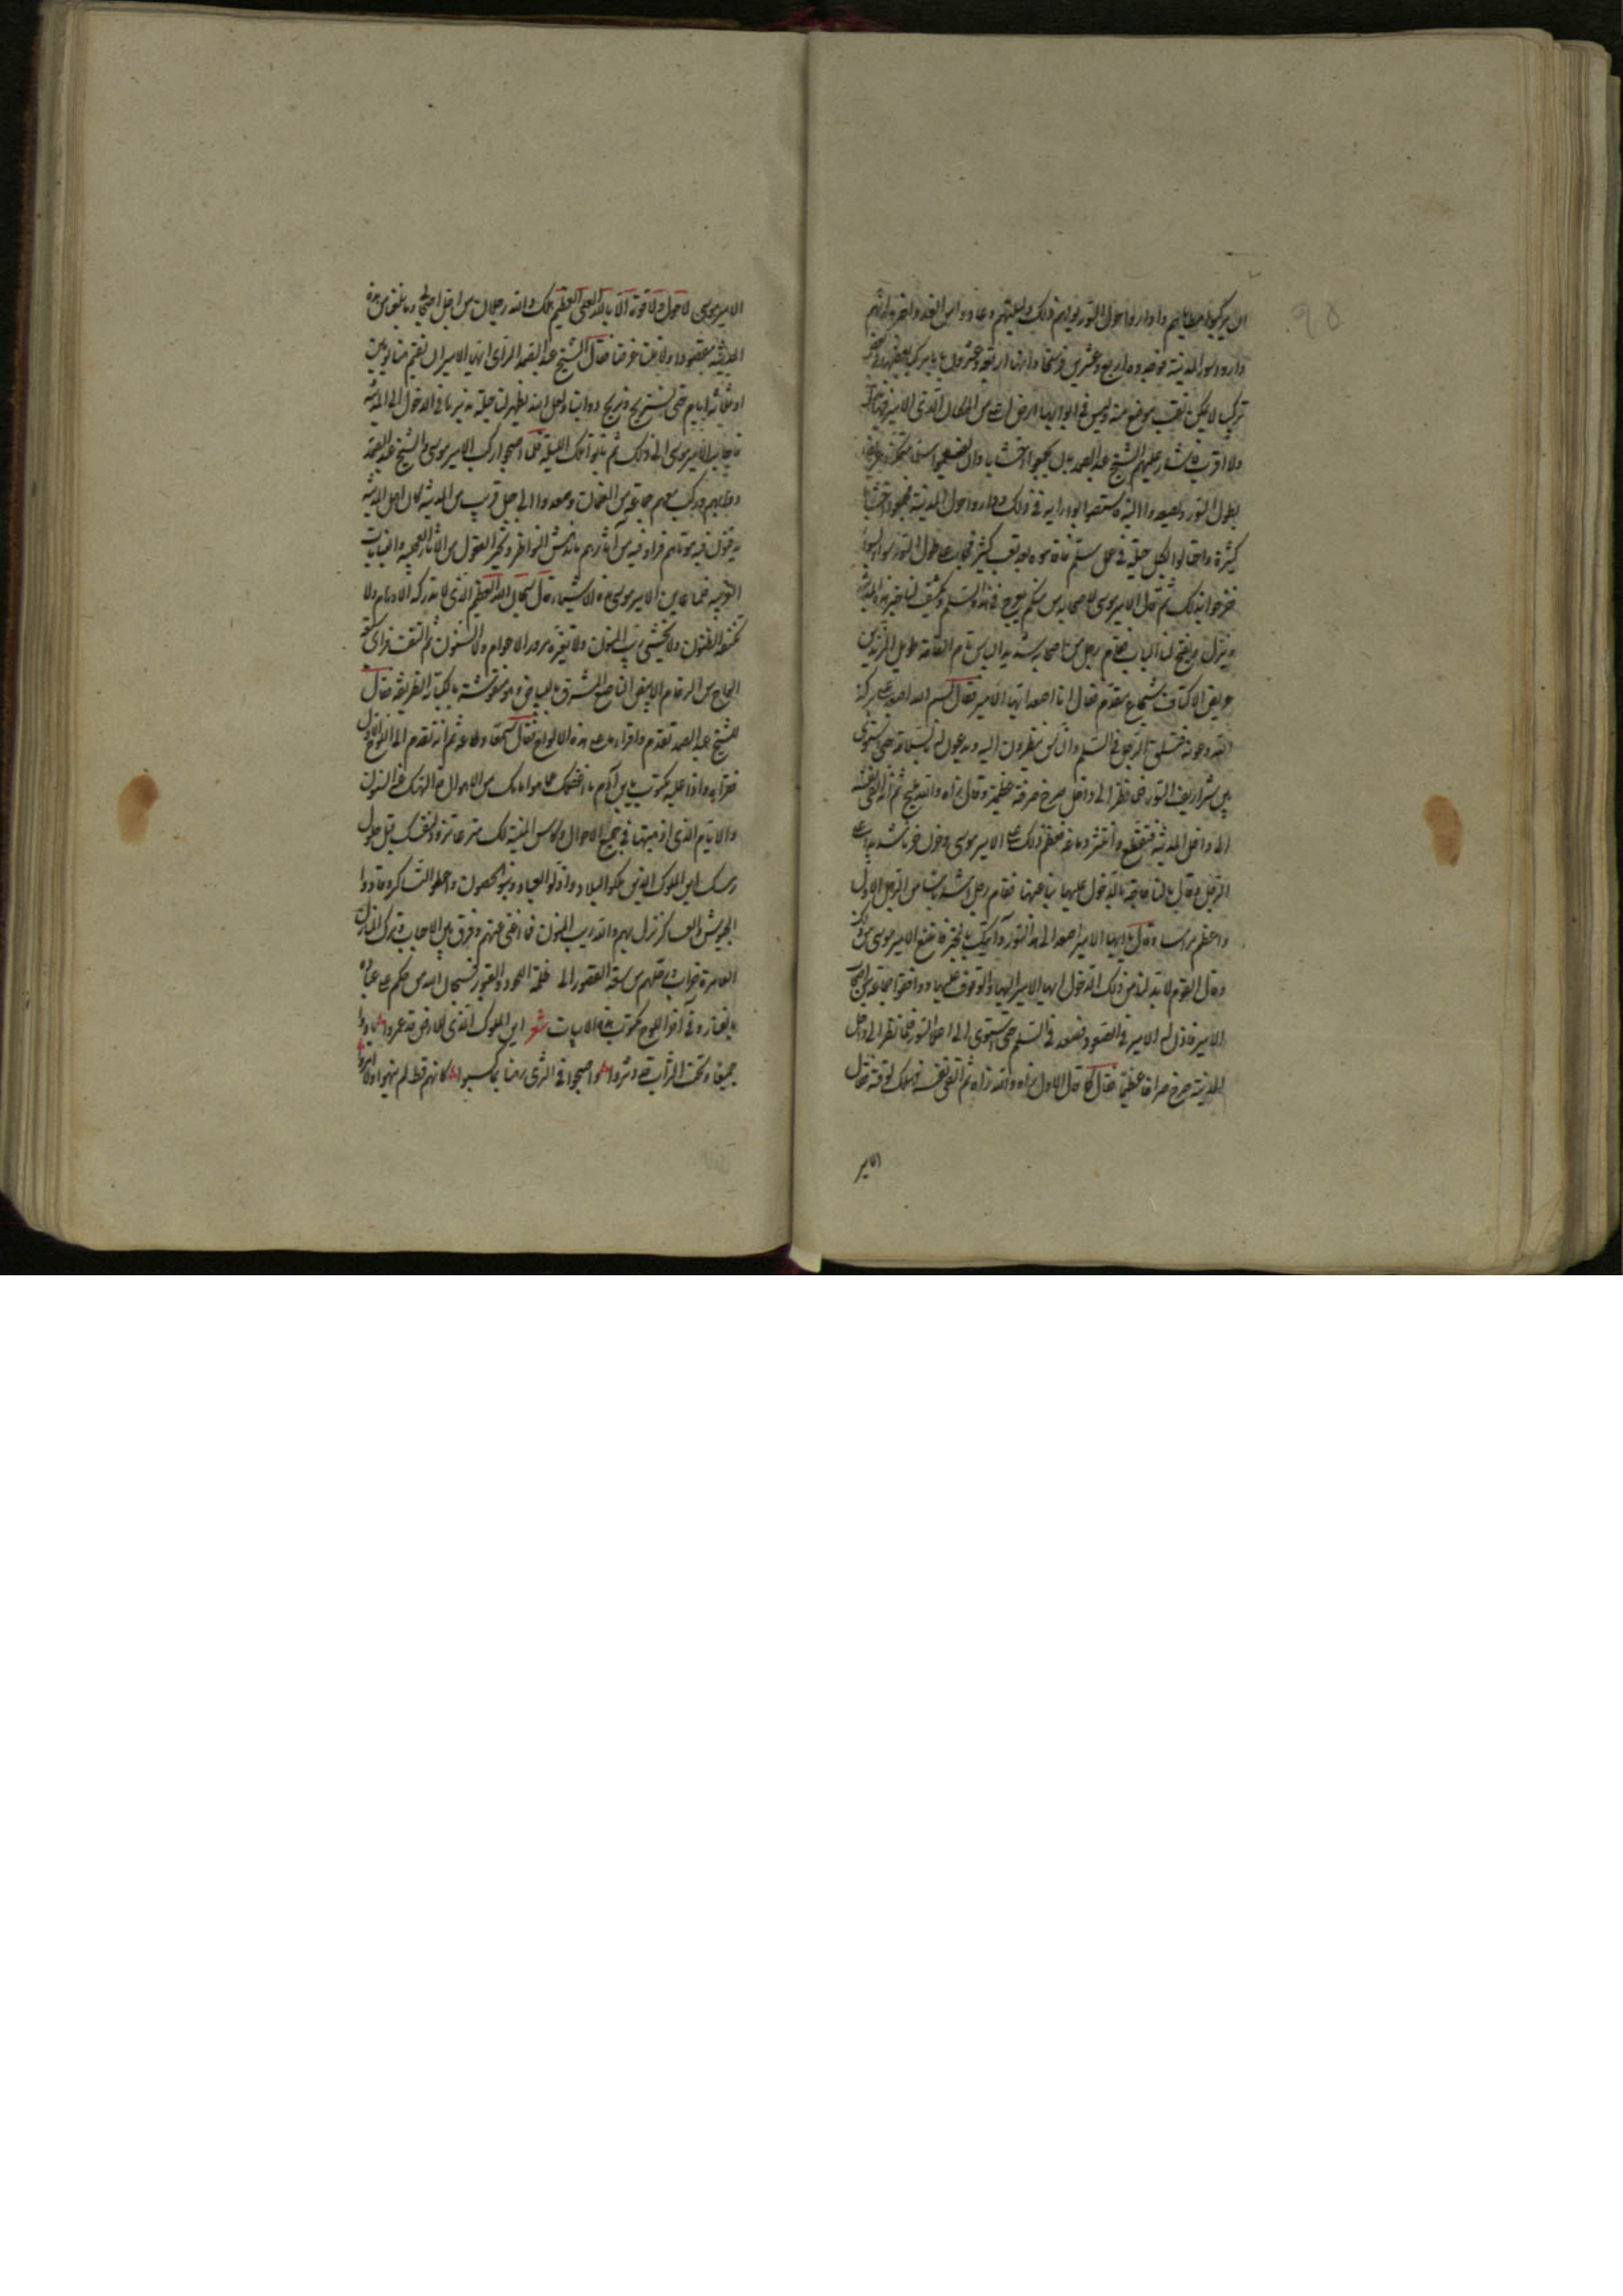 ان يركبوا مطاياهم وداروا حول السور يومهم ذلك وليلتهم وعادوا من الغد واخبروا انهم
داروا بسور المدينة فوجدوه اربع وعشرين فرسخا ولها اربعة وعشرون بابا مركبة بعضها
تركيب لا يمكن نقب موضع منه وليس في ابوابها ارض من المكان الذي الامير فيه
ولا اقرب فاشار عليهم الشيخ عبد الصمد بان يجمعوا اخشابا وان يصنعوا سلما
بطول السور ويصعدوا اليه فاستصوبوا رايه في ذلك وداروا حول المدينة فجمعوا اخشابا
كثيرة واحتالوا بكل حيلة في عمل سلم فاقاموه بعد تعب كثير فجاء على طول السور
ففرحوا بذلك ثم قال الامير موسى لاصحابه من منكم يعرج في هذا السلم ويكشف لنا خبر هذه المدينة
وينزل ويفتح لنا الباب فقام رجل من اصحابه شديد الباس تام القامة طويل الزندين
عريض الاكتاف شجاع مقدم فقال انا اصعد ايها الامير فقال بسم الله اصعد على بركة
الله وعونه فتسلق الرجل في السلم والناس ينظرون اليه ويدعون له بالسلامة حتى استوى
بين شراريف السور فلما نظر الى داخل صرخ صرخة عظيمة وقال نراه والله مليح ثم انه القى نفسه
الى داخل المدينة فتقطع وانتثر دماغه فعظم ذلك على الامير موسى وحزن حزنا شديدا على
الرجل وقال ما لنا حاجة بالدخول عليها فقام رجل اشد باسا من الرجل الاول
واعظم مراسا وقال يا ايها الامير اصعد الى هذا السور وآتيك بالخبر فامتنع الامير موسى من ذلك
وقال القوم لا بد لنا من ذلك الدخول اليها ايها الامير والوقوف عليها وواقفوا جماعة من اصحابه
الامير فاذن له الامير في الصعود فصعد في السلم حتى استوى الى اعلى السور فلما نظر الى داخل
المدينة صرخ صراخا عظيما فقال كما قال الاول نراه والله نراه ثم القى نفسه فهلك لوقته فقال
الامير
الامير موسى لا حول ولا قوة الا بالله العلي العظيم هلك والله رجلان من اجل اصحابي وما بلغنا من هذه
المدينة مقصودا ولا نلنا غرضا فقال الشيخ عبد الصمد الراي ايها الامير ان نقيم هنا يومين
او ثلاثة ايام حتى نستريح ونريح دوابنا ولعل الله يظهر لنا حيلة ندبرها في الدخول الى المدينة
فاجابه الامير موسى الى ذلك ثم باتوا تلك الليلة فلما اصبحوا ركب الامير موسى والشيخ عبد الصمد
وطالب وركب معهم جماعة من الغلمان وصعدوا الى جبل قريب من المدينة كان اهل المدينة
يدفنون فيه موتاهم فراوا فيه من آثارهم ما يدهش النواظر ويحير العقول من الآثار العجيبة والغايات
الغريبة فلما عاين الامير موسى هذه الاشياء قال سبحان الله العظيم الذي لا تدركه الاوهام ولا
تكتنفه الظنون ولا يخشى ريب المنون ولا تغيره مرور الاعوام والسنون ثم التفت فراى
الواح من الرخام الابيض الناصع المشرق بالبياض وهو منقوشة بالكتابة الظريفة فقال
للشيخ عبد الصمد تقدم واقرا ما على هذه الالواح فقال سمعا وطاعة ثم انه تقدم الى اللوح الاول
فقراه واذا عليه مكتوب يا بن آدم ما اغفلك عما امامك من الاهوال قد الهتك عنه السنون
والايام الذي اذهبتها في جميع الاحوال وكاس المنية لك مترعة فتزود لنفسك قبل حلول
رمسك اين الملوك الذين ملكوا البلاد واذلوا العباد وبنوا الحصون وعملوا الدساكر وقادوا
الجيوش والعساكر نزل بهم والله ريب المنون فما اغنى عنهم وفرق بين الاحباب وترك المنازل
العامرة خراب ونقلهم من سعة القصور الى ظلمة اللحود والقبور فسبحان الله من حكم على عباده
بالفناء وفي آخر اللوح مكتوب هذه الابيات شعر اين الملوك الذي للارض قد عمروا وبادوا
جميعا وتحت التراب قد دثروا واصبحوا في الثرى رهنا بما كسبوا كانهم قط لم ينهوا ولا امروا